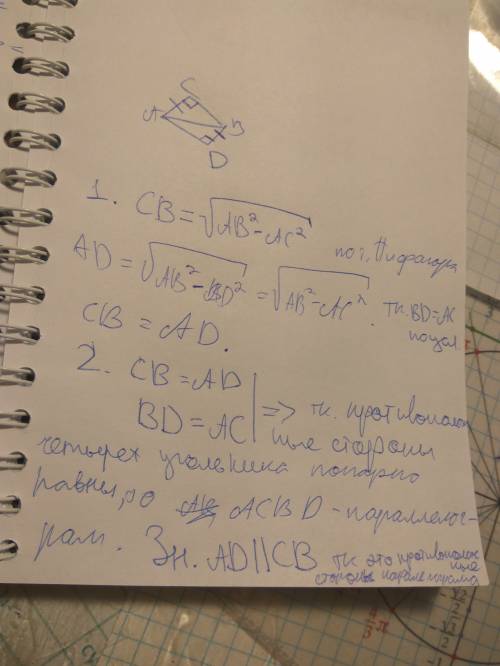 C
A
B
D
1. CB = √AB² - AC²
по т. Пифагора
AD = √AB² - BD² = √AB² - AC² . тк. BD = AC
по усл.
CB = AD.
2. CB = AD
BD = AC | => тк. противополож
ные стороны
четырех угольника попарно
равны, то ACBD - параллелог-
рам. Зн. AD || CB тк это противополож
ные
стороны паралелограма
√2
2
4
3
π